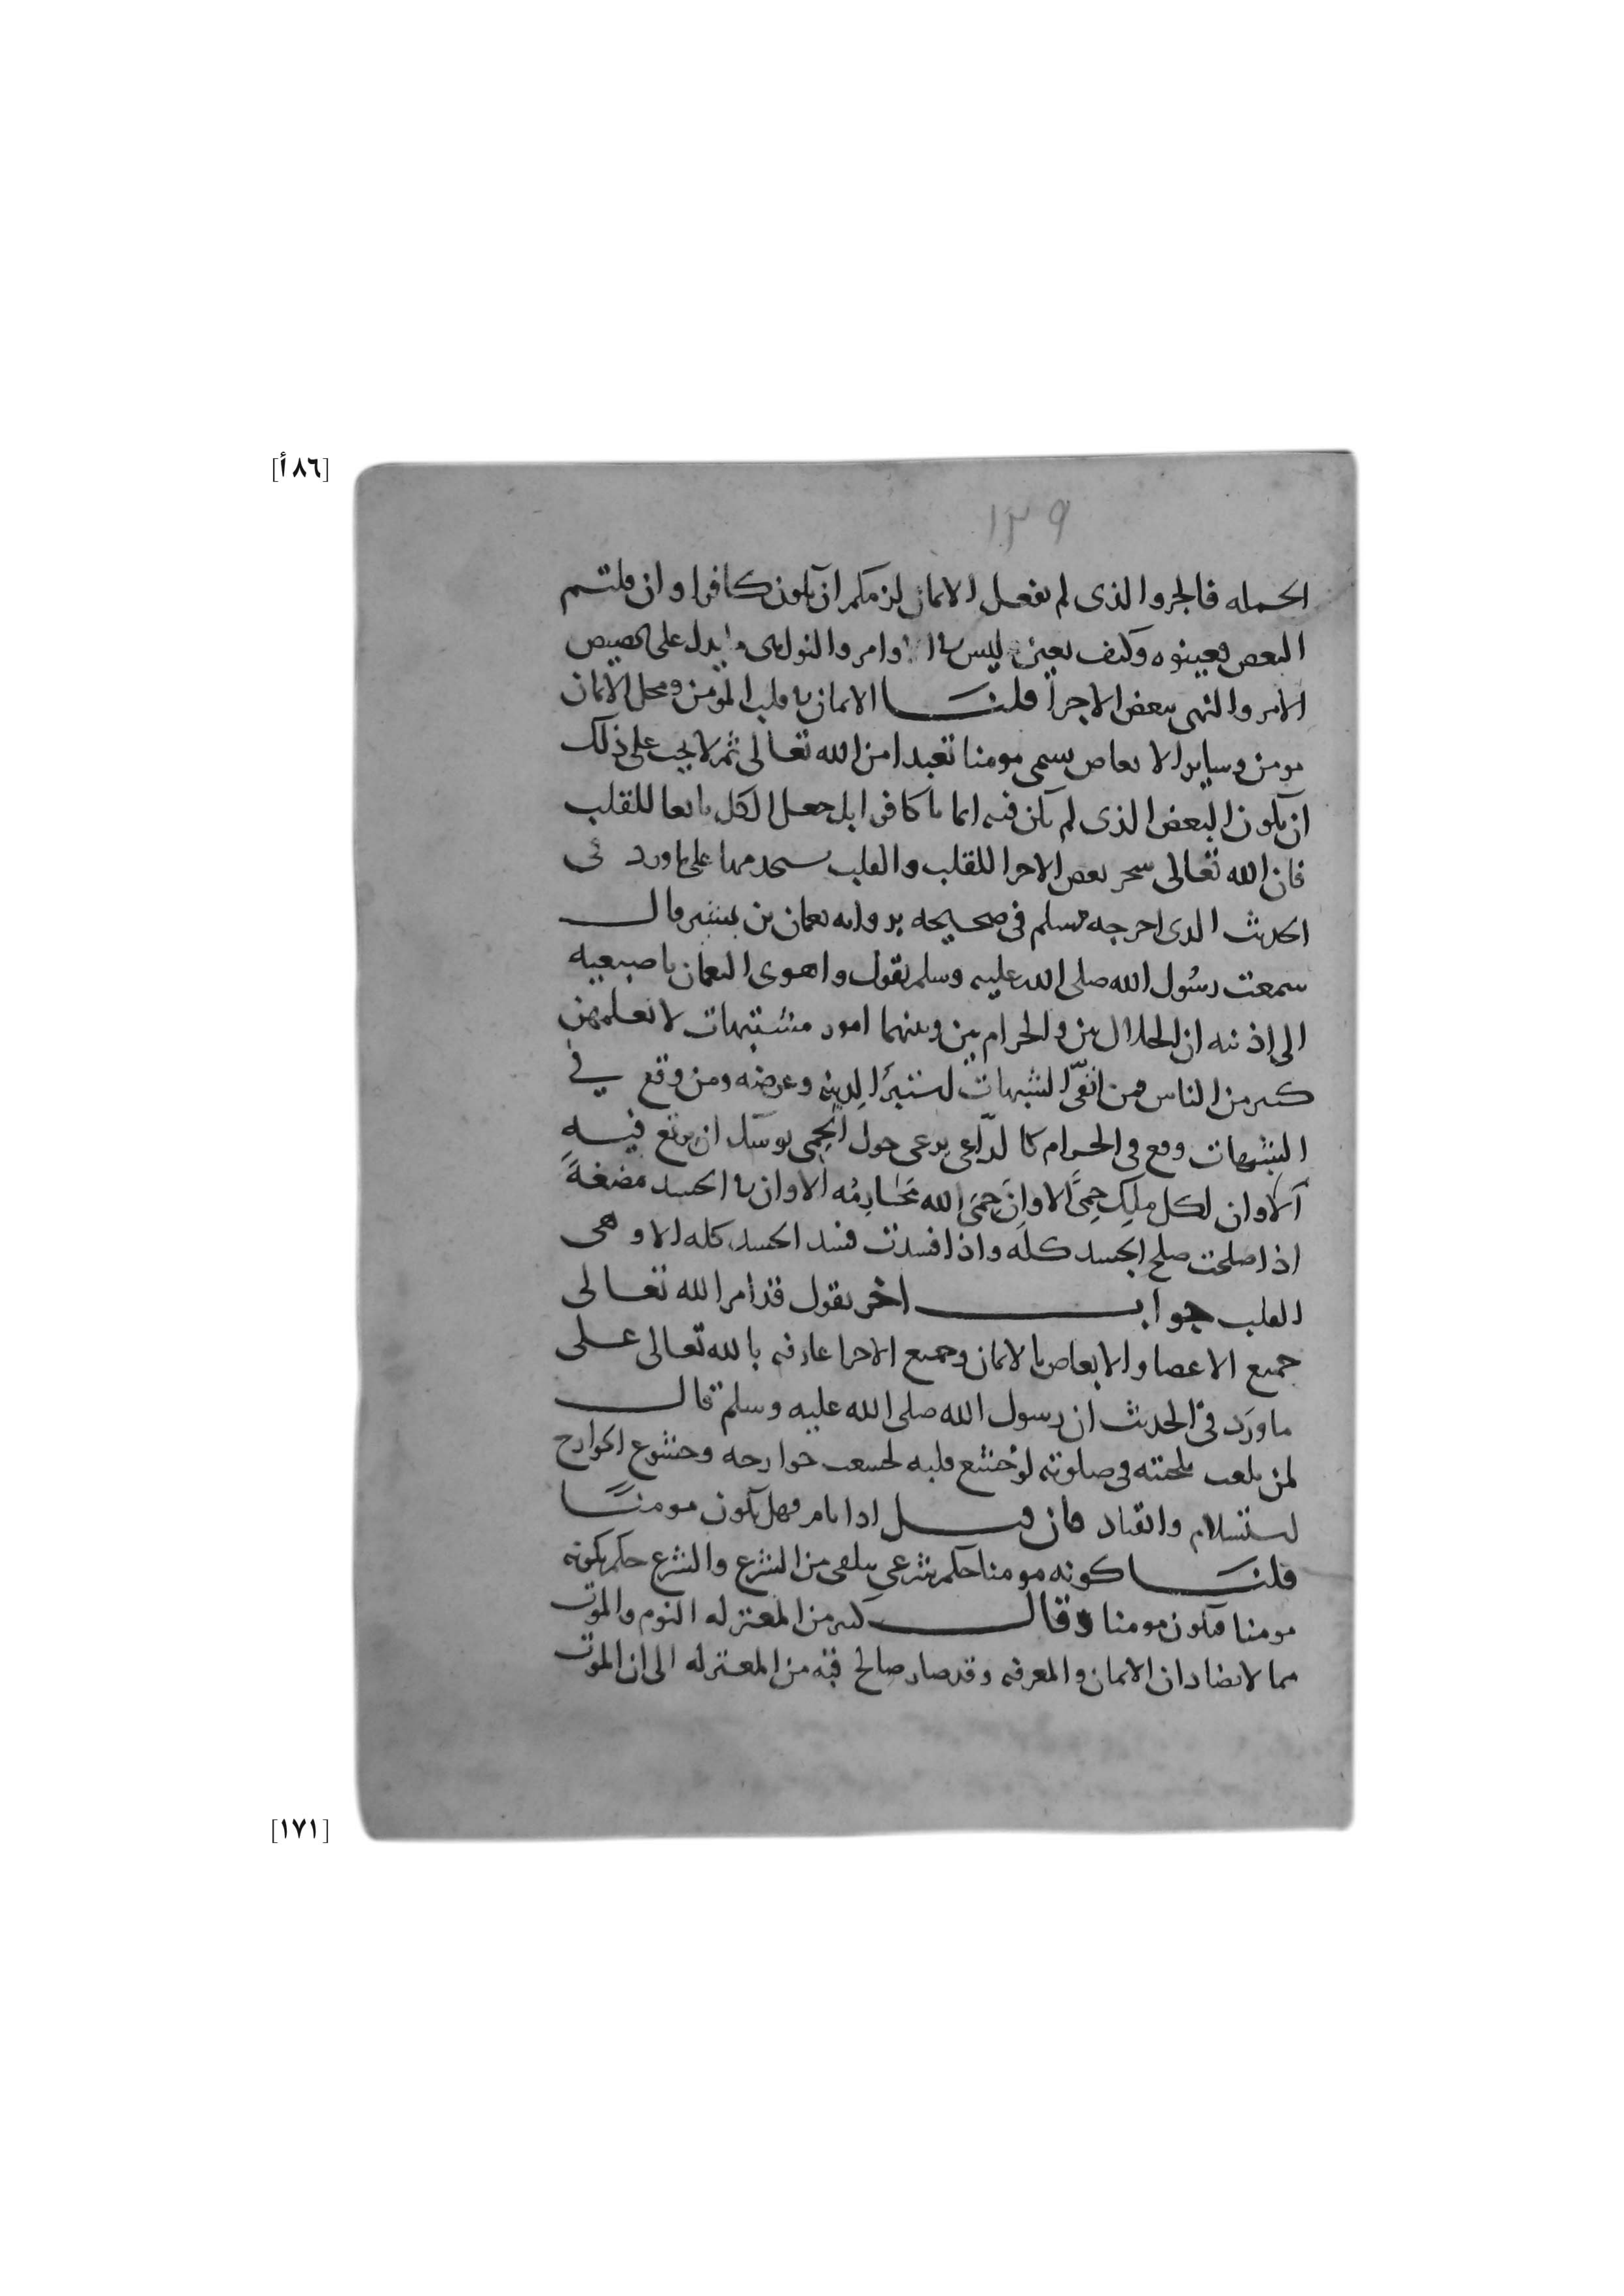 [٨٦أ]
١٣٩
الجمله فالجزو الذى لم يفعل الايمان لزمكم ان يكون كافرا وان قلتم
البعض فعينوه وكيف يعين وليس في الاوامر والنواهى ما يدل على تخصيص
الامر والنهى ببعض الاجزا قلنا الايمان في قلب المؤمن ومحل الايمان
مومن وساير الابعاض يسمى مومنا تعبدا من الله تعالى ثم لا يجب على ذلك
ان يكون البعض الذى لم يكن فيه ايمانا كافرا بل جعل الكل تابعا للقلب
فان الله تعالى سخر بعض الاجزا للقلب والقلب يستخدمها على ما ورد فى
الحديث الذى اخرجه مسلم فى صحيحه بروايه نعمان بن بشير قال
سمعت رسُول الله صلى الله عليه وسلم يقول واهوى النعمان باصبعيه
الى اذنيه ان الحلال بين والحرام بين وبينهما امور مشتبهات لا يعلمهن
كثير من الناس فمن اتقى الشبهات استبرَأ لِدينه وعرضه ومن وقع في
الشبهات وقع فى الحرام كالرّاعى يرعى حول الحِمى يوشك ان يرتع فيهِ
ألا وان لكل ملِكٍ حِمىً الا وانَّ حِمَى الله مَحَارِمُه الا وان في الجسد مضغةً
اذا صلحت صلح الجسد كله واذا فسدت فسد الجسد كله الا وهى
القلب جواب اخر نقول قد امر الله تعالى
جميع الاعضا والابعاض بالايمان وجميع الاجزا عارفه بالله تعالى على
ما ورَد فى الحديث ان رسول الله صلى الله عليه وسلم قال
لمن يلعب بلحيته فى صلوته لو خشع قلبه لخشعت جوارحه وخشوع الجوارح
استسلام وانقياد فان قيل اذا نام فهل يكون مومنًا
قلنا كونه مومنا حكم شرعي يتلقى من الشرع والشرع حكم بكونه
مومنا فيكون مومنا وقال كثير من المعتزله النوم والموت
مما لا يضادان الايمان والمعرفه وقد صار صالح قبه من المعتزله الى ان الموت
[١٧١]